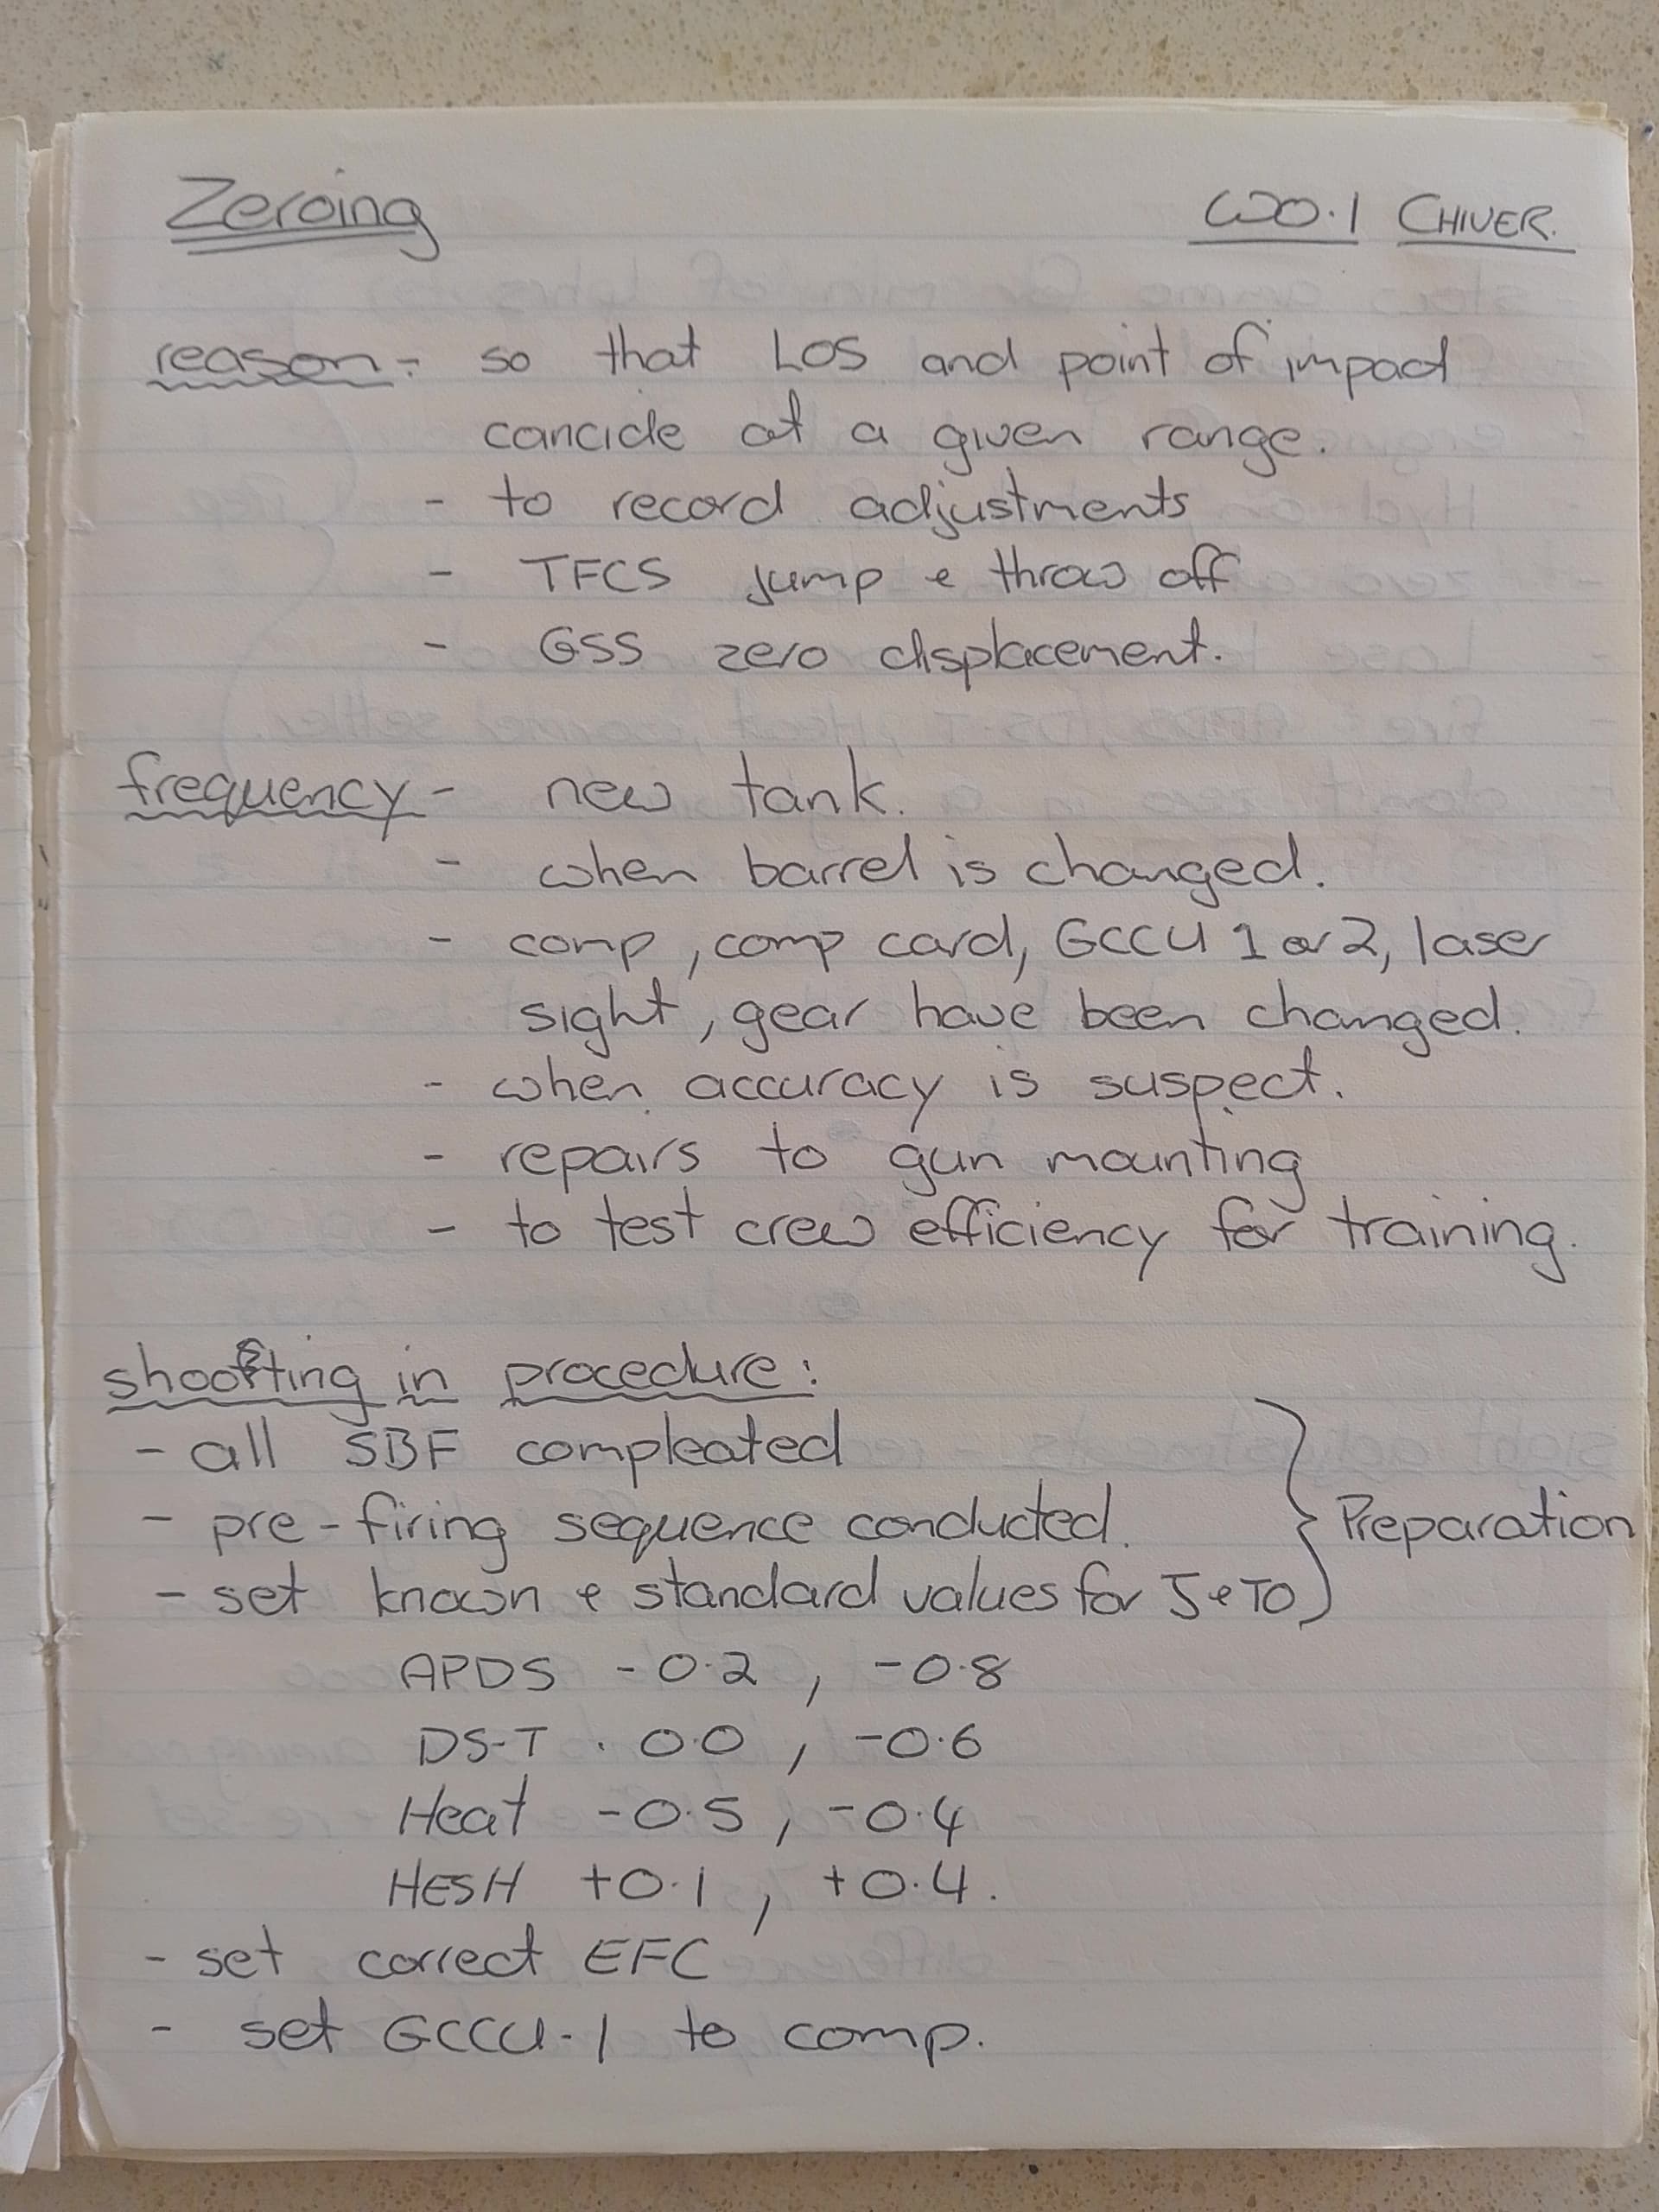 Zeroing WO.1 CHIVER.
reason - so that LOS and point of impact
cancide at a given range.
- to record adjustments
- TFCS jump & throw off
- GSS zero displacement.
frequency - new tank.
- when barrel is changed.
- comp, comp card, GCCU 1 or 2, laser
sight, gear have been changed.
- when accuracy is suspect.
- repairs to gun mounting
- to test crew efficiency for training.
shooting in procedure:
- all SBF compleated
- pre-firing sequence conducted.
- set known & standard values for J & TO } Preparation
APDS -0.2, -0.8
DS-T . 0.0, -0.6
Heat -0.5, -0.4
HESH +0.1, +0.4.
- set correct EFC
- set GCCU-1 to comp.